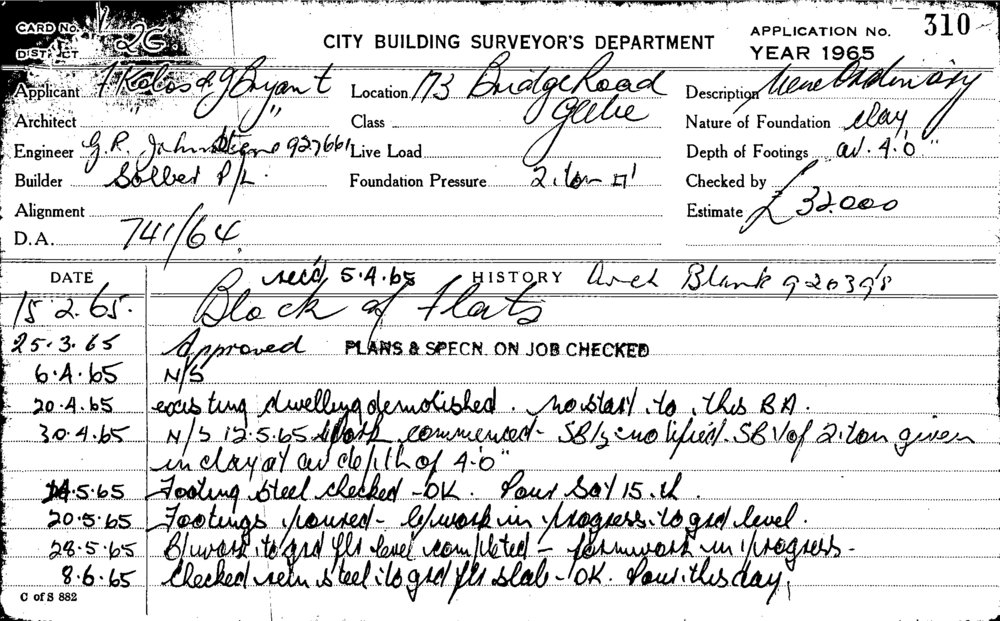 CARD No. 1 26
DISTRICT
CITY BUILDING SURVEYOR'S DEPARTMENT
APPLICATION No. 310
YEAR 1965
Applicant J Kalos & J Bryant Location 173 Bridge Road Description
Architect " " Class Glebe Nature of Foundation clay
Engineer G.R. 927661 Live Load Depth of Footings av. 4.0"
Builder Solber P/L. Foundation Pressure 2. ton □' Checked by
Alignment Estimate £ 32.000
D.A. 741/64
DATE rec'd 5.4.65 HISTORY Arch Blank 920398
15 2.65. Block of Flats
25.3.65 Approved PLANS & SPECN. ON JOB CHECKED
6.4.65 N/S
20.4.65 existing dwelling demolished. no start to this BA.
30.4.65 N/S 12.5.65 Work commenced - notified. SBV of 2. ton given
in clay at av depth of 4.0"
14.5.65 Footing steel checked - OK. Pour Sat 15.th.
20.5.65 Footings poured - b/work in progress to grd level.
28.5.65 B/work to grd flr level completed - formwork in progress -
8.6.65 Checked rein steel to grd flr slab - OK. Pour this day.
C of S 882